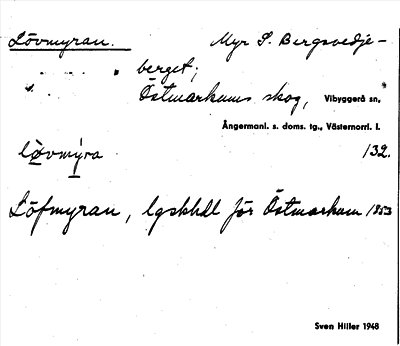 Lövmyran. Myr S. Bergsvedje-
berget;
Östmarkums skog, Vibyggerå sn,
Ångermanl. s. doms. tg., Västernorrl. l.
lövmýra 132.
Löfmyran, lgskhdl för Östmarkum 1853
Sven Hiller 1948